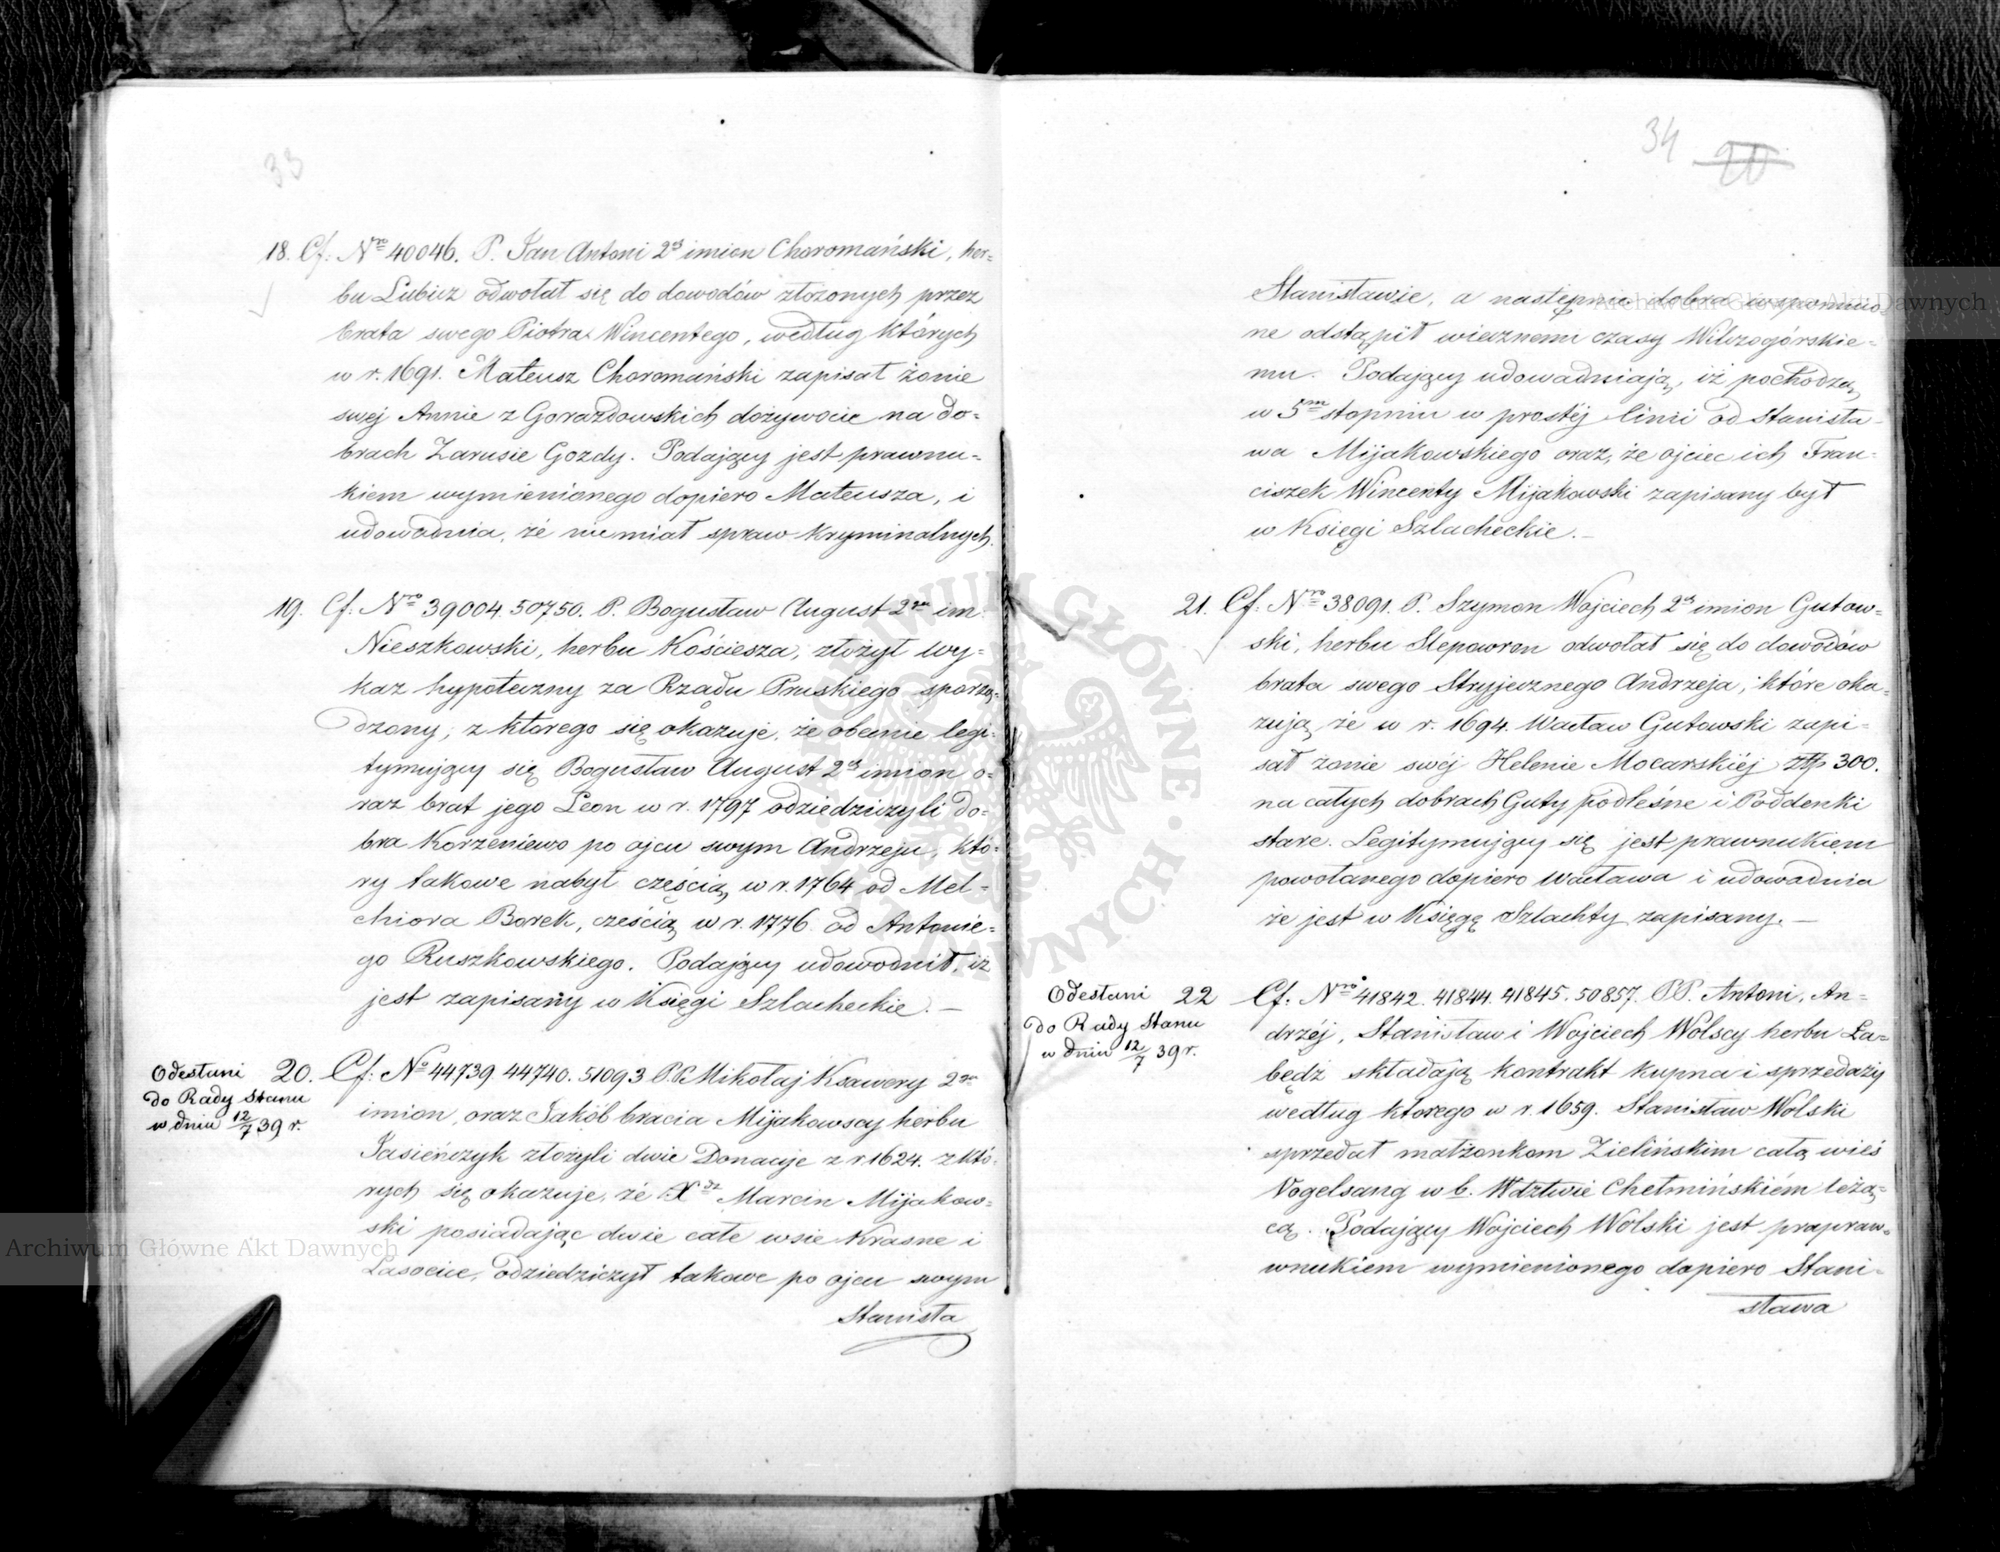 33
18. Cf. Nro 40046. P. Jan Antoni 2ch imion Choromański, her=
bu Lubicz odwołał się do dowodów złożonych przez
brata swego Piotra Wincentego, według których
w r. 1691. Mateusz Choromański zapisał żonie
swej Annie z Gorazdowskich dożywocie na do=
brach Zarusie Gozdy. Podający jest prawnu=
kiem wymienionego dopiero Mateusza, i
udowadnia, że nie miał spraw kryminalnych.
19. Cf. Nro 39004. 50750. P. Bogusław August 2ga im.
Nieszkowski, herbu Kościesza, złożył wy=
kaz hypoteczny za Rządu Pruskiego sporzą=
dzony, z którego się okazuje, że obecnie legi=
tymujący się Bogusław August 2ch imion o=
raz brat jego Leon w r. 1797 odziedziczyli do=
bra Korzeniewo po ojcu swym Andrzeju, któ=
ry takowe nabył częścią w r. 1764 od Mel=
chiora Borek, cześcią w r. 1776. od Antonie=
go Ruszkowskiego. Podający udowodnił, iż
jest zapisany w Księgi Szlacheckie. —
Odesłani
do Rady Stanu
w dniu 12/7 39 r.
20. Cf. No 44739 44740. 51093 P.P. Mikołaj Ksawery 2ga
imion, oraz Jakób bracia Mijakowscy herbu
Jasieńczyk złożyli dwie Donacyje z r 1624. z któ=
rych się okazuje, że Xdz Marcin Mijakow=
ski posiadając dwie całe wsie Krasne i
Lasocice, odziedziczył takowe po ojcu swym
Stanisła
34 20
Stanisławie, a następnie dobra wspomnio
ne odstąpił wiecznemi czasy Wilczogórskie=
mu. Podający udowadniają, iż pochodzą
w 5m stopniu w prostéj linii od Stanisła=
wa Mijakowskiego oraz, że ojciec ich Fran=
ciszek Wincenty Mijakowski zapisany był
w Księgi Szlacheckie. —
21. Cf. Nro 38091. P. Szymon Wojciech 2ch imion Gutow=
ski, herbu Slepowron odwołał się do dowodów
brata swego Stryjecznego Andrzeja, które oka=
zują, że w r. 1694. Wacław Gutowski zapi=
sał żonie swéj Helenie Mocarskiéj złtp 300.
na całych dobrach Guty podleśne i Poddenki
stare. Legitymujący się jest prawnukiem
powołanego dopiero Wacława i udowadnia
że jest w Księgę Szlachty zapisany. —
Odesłani
do Rady Stanu
w dniu 12/7 39 r.
22 Cf. Nro 41842. 41844. 41845. 50857. P.P. Antoni, An=
drzéj, Stanisław i Wojciech Wolscy herbu Ła=
będź składają kontrakt kupna i sprzedaży
według którego w r. 1659. Stanisław Wolski
sprzedał małżonkom Zielińskim całą wieś
Vogelsang w b. Wdztwie Chełmińskiém leżą=
cą. Podający Wojciech Wolski jest prapraw=
wnukiem wymienionego dopiero Stani=
sława
Archiwum Główne Akt Dawnych
Archiwum Główne Akt Dawnych
ARCHIWUM GŁÓWNE AKT DAWNYCH